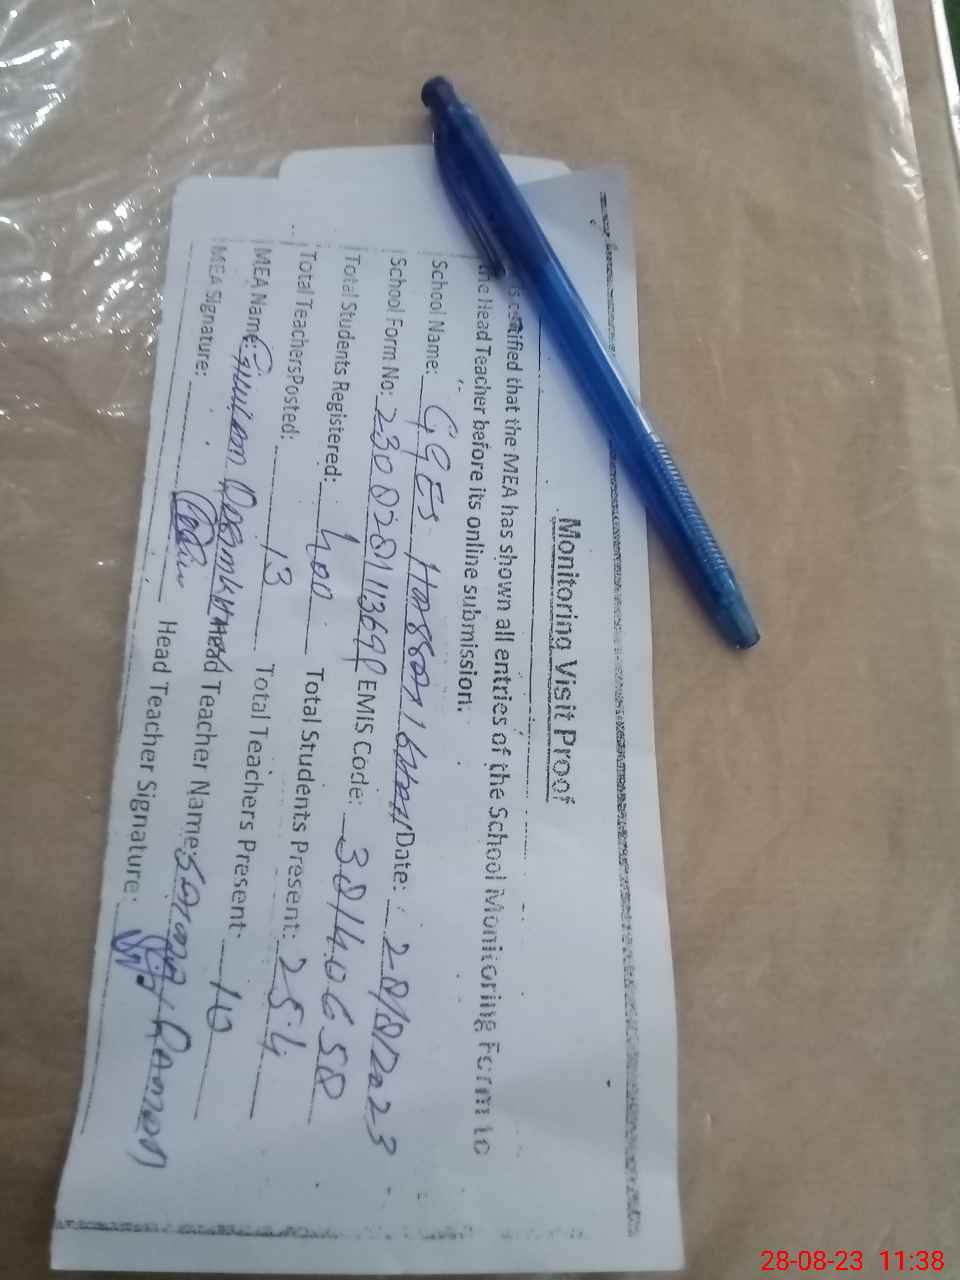 Monitoring Visit Proof
is certified that the MEA has shown all entries of the School Monitoring Form to
the Head Teacher before its online submission.
School Name: GGES Hassan Date: 28/8/2023
School Form No: EMIS Code: 38140658
Total Students Registered: 400 Total Students Present: 254
Total Teachers Posted: 13 Total Teachers Present: 10
MEA Name: Head Teacher Name:
MEA Signature: Head Teacher Signature:
28-08-23 11:38